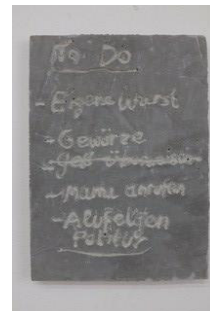 To Do
- Eigene Wurst
- Gewürze
- Mama anrufen
- Alufelgen
Politur